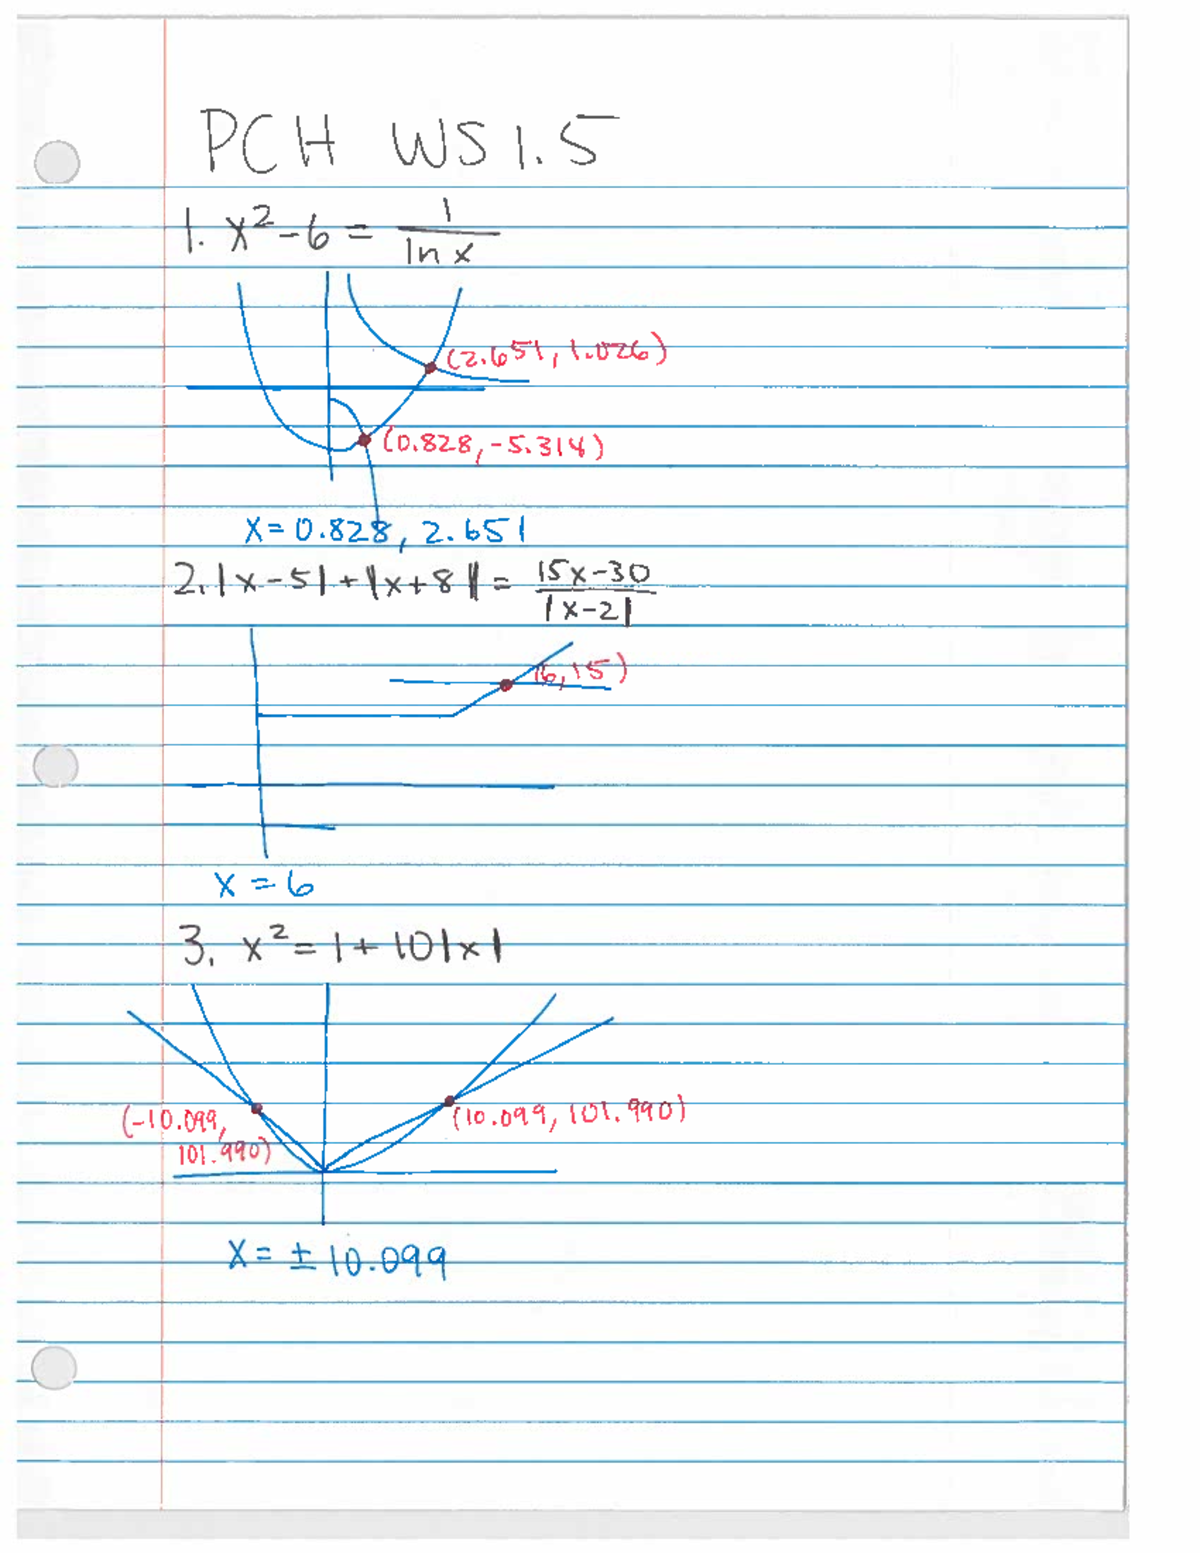 PCH WS 1.5
1. x² - 6 = 1 / ln x
(2.651, 1.026)
(0.828, -5.314)
x = 0.828, 2.651
2. |x - 5| + |x + 8| = 15x - 30 / |x - 2|
(6, 15)
x = 6
3. x² = 1 + 10|x|
(-10.099,
101.990)
(10.099, 101.990)
x = ± 10.099